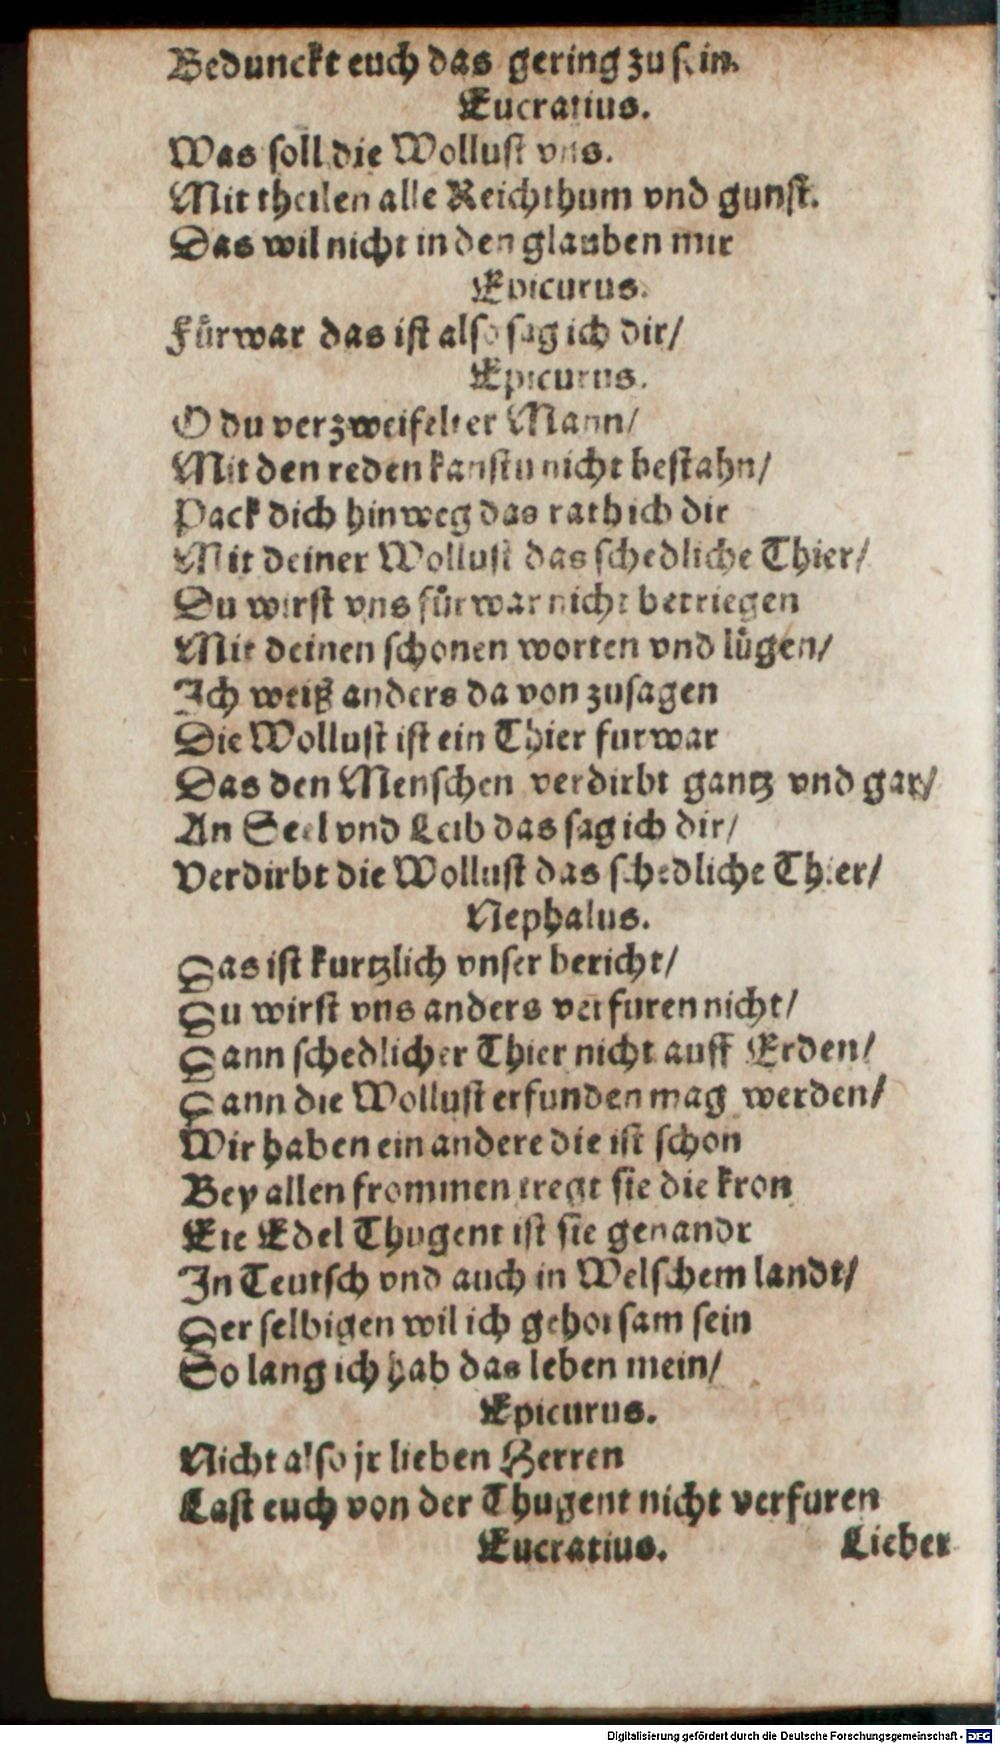 Bedunckt euch das gering zu sein.
Eucratius.
Was soll die Wollust vns.
Mit theilen alle Reichthum vnd gunst.
Das wil nicht in den glauben mir
Epicurus.
Fürwar das ist also sag ich dir/
Epicurus.
O du verzweifelter Mann/
Mit den reden kanstu nicht bestahn/
Pack dich hinweg das rath ich dir
Mit deiner Wollust das schedliche Thier/
Du wirst vns fürwar nicht betriegen
Mit deinen schonen worten vnd lügen/
Ich weiß anders da von zusagen
Die Wollust ist ein Thier furwar
Das den Menschen verdirbt gantz vnd gar/
An Seel vnd Leib das sag ich dir/
Verdirbt die Wollust das schedliche Thier/
Nephalus.
Das ist kurtzlich vnser bericht/
Du wirst vns anders verfuren nicht/
Dann schedlicher Thier nicht auff Erden/
Dann die Wollust erfunden mag werden/
Wir haben ein andere die ist schon
Bey allen frommen tregt sie die kron
Eie Edel Thugent ist sie genandt
In Teutsch vnd auch in Welschem landt/
Der selbigen wil ich gehorsam sein
So lang ich hab das leben mein/
Epicurus.
Nicht also jr lieben Herren
Last euch von der Thugent nicht verfuren
Eucratius. Lieber
Digitalisierung gefördert durch die Deutsche Forschungsgemeinschaft - DFG